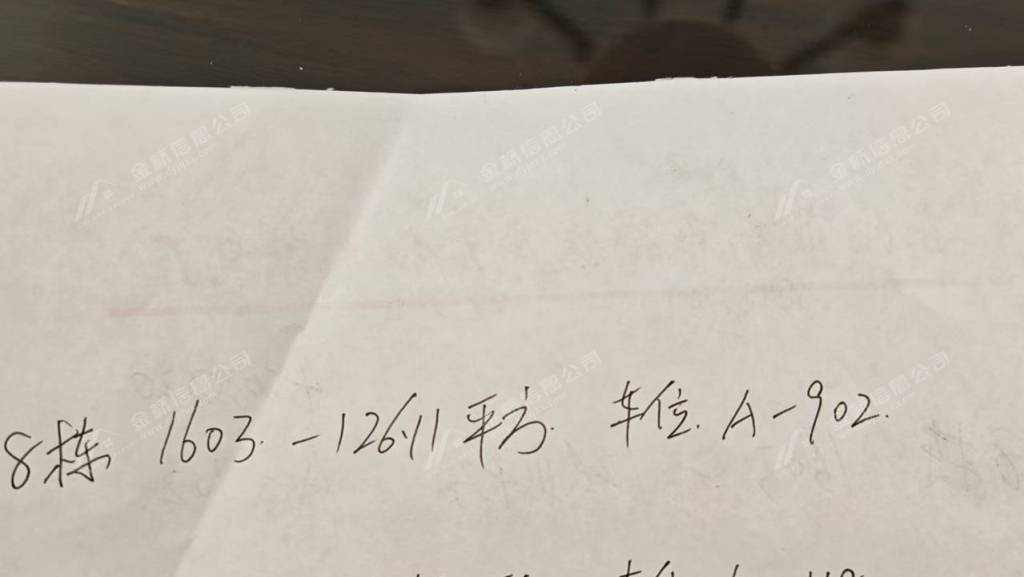 8栋 1603. -126.11平方. 车位. A-902.
金新信息公司
金新信息公司
金新信息公司
金新信息公司
金新信息公司
金新信息公司